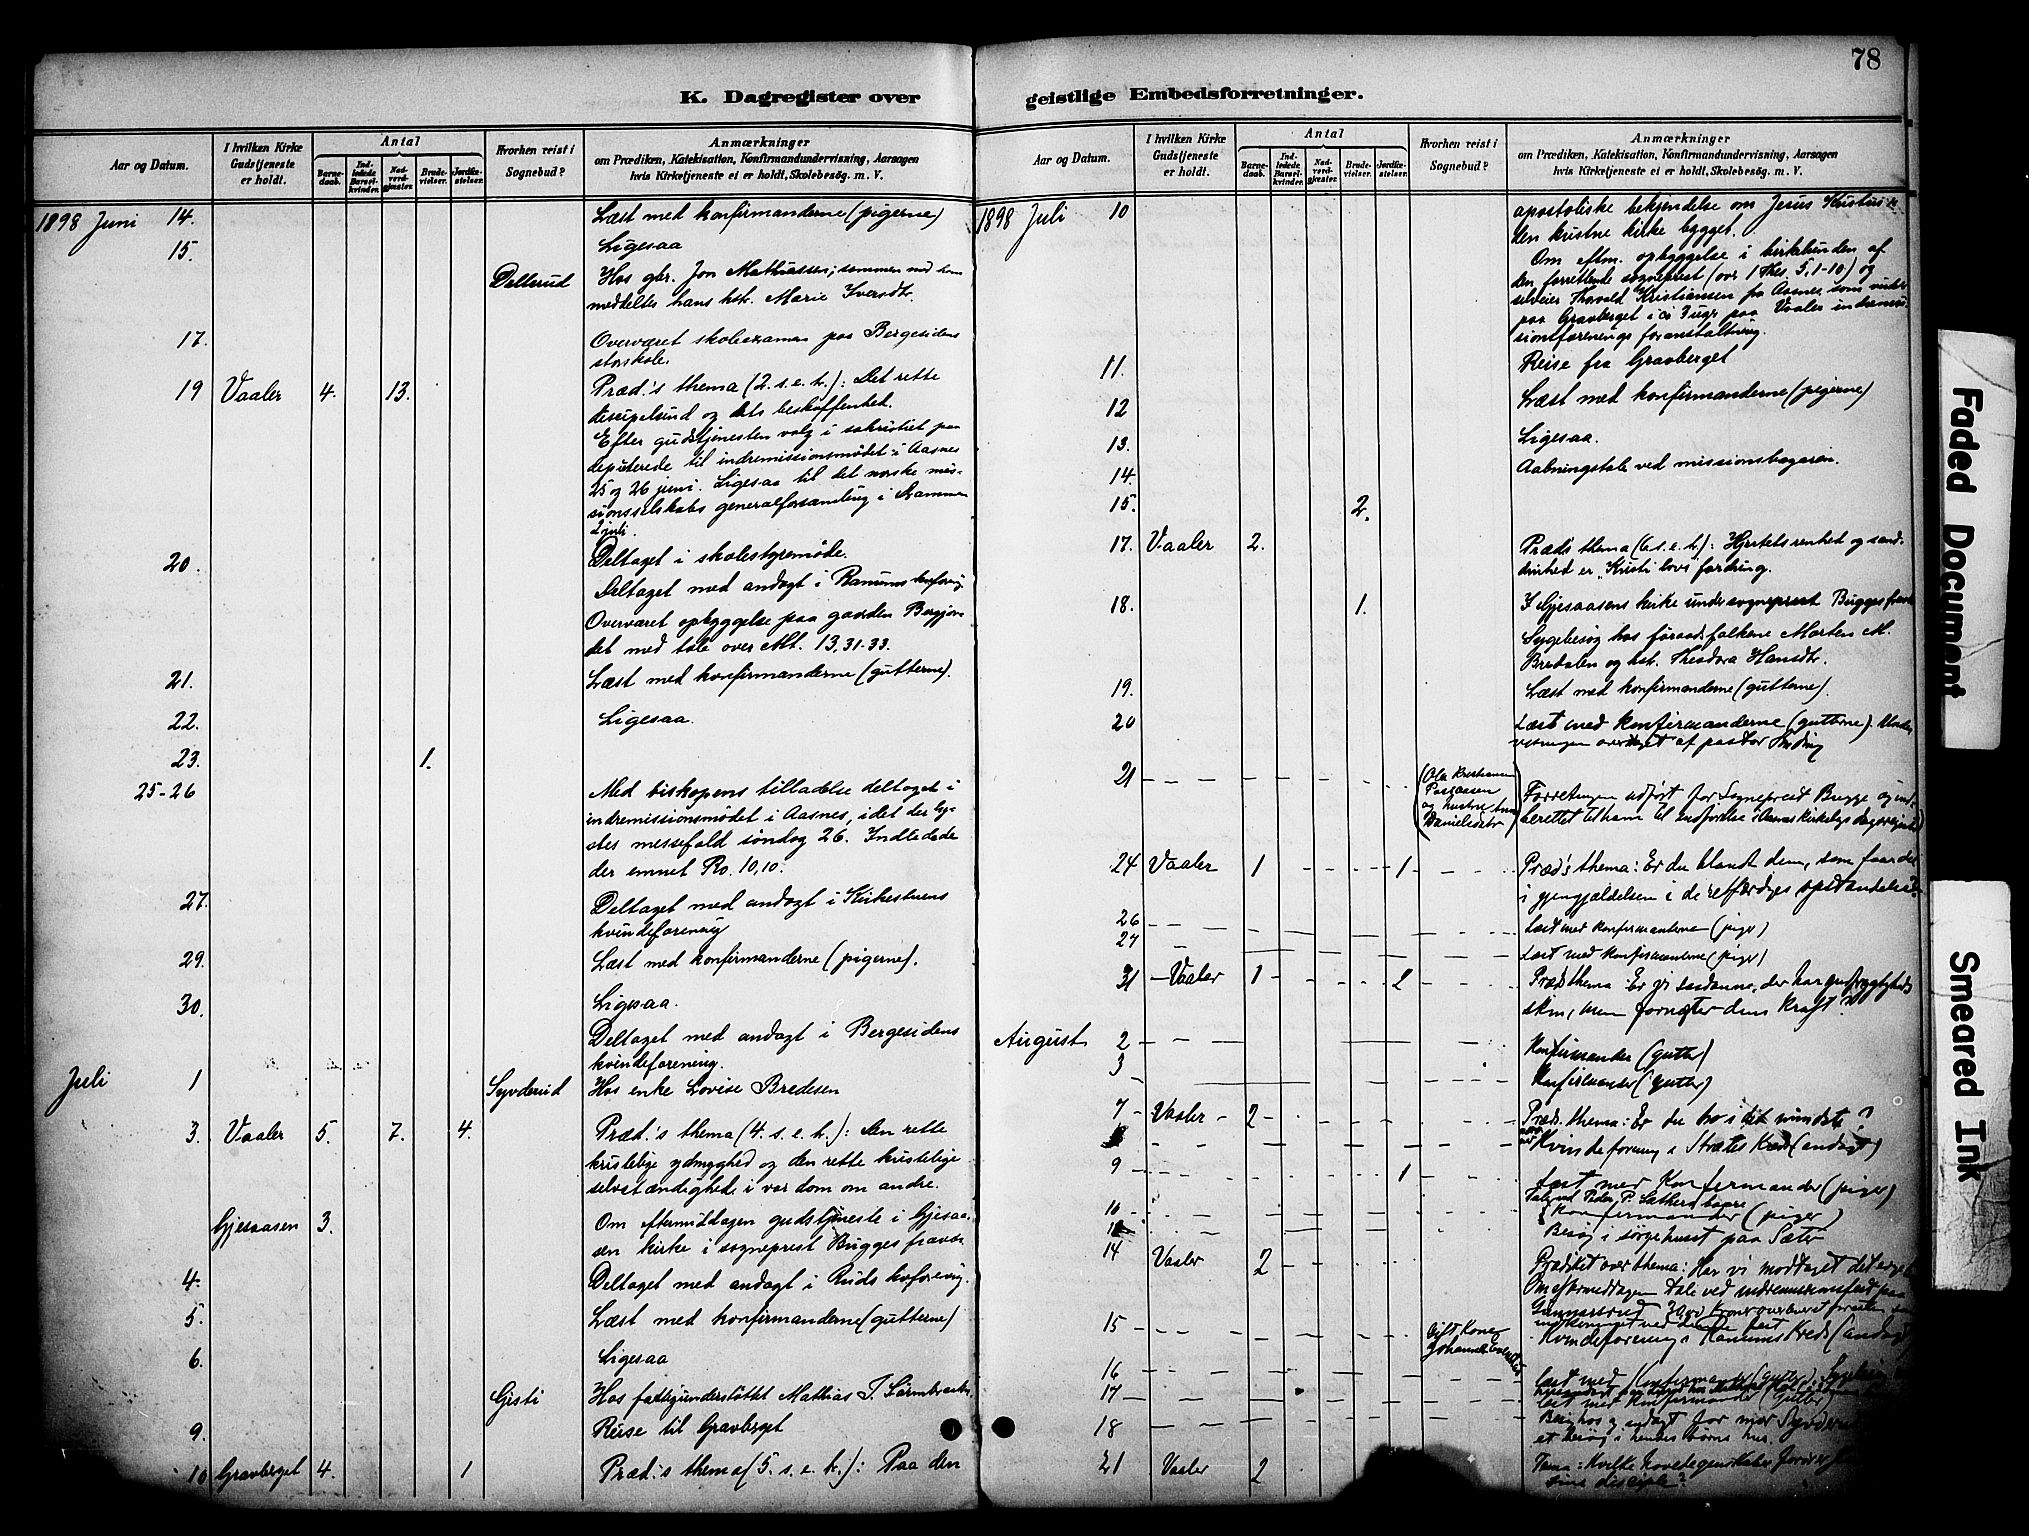 78
K. Dagregister over
geistlige Embedsforretninger.
Aar og Datum.
I hvilken Kirke Gudstjeneste er holdt.
Antal
Barne-daab.
Ind-ledede Barsel-kvinder.
Nad-verd-gjester.
Brude-vielser.
Jordfæ-stelser.
Hvorhen reist i Sognebud?
Anmærkninger
om Prædiken, Katekisation, Konfirmandundervisning, Aarsagen
hvis Kirketjeneste ei er holdt, Skolebesøg. m. V.
1898 Juni 14. Læst med konfirmanderne (pigerne)
15. Ligesaa
Dellerud Hos gbr. Jon Mathiassen; sammen med ham
meddeltes hans hst. Marie Iversdtr.
17. Overværet skoleexamen paa Bergesidens
storskole.
19 Vaaler 4. 13. Præd.'s thema (2. s. e. tr.): Det rette
discipelsind og dets beskaffenhed.
Efter gudstjenesten valg i sakristiet paa
deputerede til indremissionsmødet i Aasnes
25 og 26 juni. Ligesaa til det norske mis-
sionsselskabs generalforsamling i Drammen
2 juli.
20. Deltaget i skolestyremøde.
Deltaget med andagt i Ranums kvforenig
Overværet opbyggelse paa gaarden Bergjor-
det med tale over Mt. 13,31-33.
21. Læst med konfirmanderne (gutterne).
22. Ligesaa.
23. 1.
25-26 Med biskopens tilladelse deltaget i
indremissionsmødet i Aasnes, idet der
messefald søndag 26. Indledede
der emnet Ro. 10,10.
27. Deltaget med andagt i Kirkestuens
kvindeforening
29. Læst med konfirmanderne (pigerne).
30. Ligesaa.
Deltaget med andagt i Bergesidens
kvindeforening.
Juli 1 Syvderud Hos enke Lovise Bredesen
3. Vaaler 5. 7. 4. Præd.'s thema (4. s. e. tr.): Den rette
kristelige ydmyghed og den rette kristelige
selvstændighed i vor dom om andre.
Gjesaasen 3. Om eftermiddagen gudstjeneste i Gjesaa-
sen kirke i sogneprest Bugges fravær
4. Deltaget med andagt i Ruds kvforenig.
5. Læst med konfirmanderne (gutterne)
6. Ligesaa
Gisti Hos fattigunderstøttet Mathias J.
9. Reise til Gravberget
10 Gravberget 4. 1 Præd.'s thema (5. s. e. tr.): Paa den
Aar og Datum.
I hvilken Kirke Gudstjeneste er holdt.
Antal
Barne-daab.
Ind-ledede Barsel-kvinder.
Nad-verd-gjester.
Brude-vielser.
Jordfæ-stelser.
Hvorhen reist i Sognebud?
Anmærkninger
om Prædiken, Katekisation, Konfirmandundervisning, Aarsagen
hvis Kirketjeneste ei er holdt, Skolebesøg. m. V.
1898 Juli 10 apostoliske bekjendelse om Jesus Kristus er
den kristne kirke bygget.
Om eftm. opbyggelse i kirkelunden af
den forrettende sogneprest (over 1 Thes. 5,1-10) og
selveier Thorvald Kristiansen fra Aasnes som
paa Gravberget i ca 3 uger paa Vaaler indremis-
sionsforenings foranstaltning.
11. Reise fra Gravberget
12 Læst med konfirmanderne (pigerne)
13. Ligesaa.
14. Aabningstale ved missionsbazaren.
15. 2.
17. Vaaler 2. Præd's thema (6. s. e. tr.): Hjertets renhed og sand-
druhed er „Kristi lovs" fordring.
18. 1. I Gjesaasens kirke under sogneprest Bugges
Sygebesøg hos føraadsfolkene Morten M.
Bredalen og hst. Theodora Hansdtr.
19. Læst med konfirmanderne (gutterne).
20 Læst med konfirmanderne (gutterne). Under-
visningen overtaget af pastor
21 (Ola Kristiansen
og hustru
Danielsdtr) Forretningen udført for Sogneprest Bugge og ind-
berettet til ham til indførelse i Aasnes kirkeligs dagregister
24 Vaaler 1 1 Præd's thema: Er du blandt dem, som faar del
i gjengjældelsen i de retfærdiges opstandelse?
26 Læst med konfirmanterne (piger)
27 Læst med konfirmanterne (piger)
31 Vaaler 1 2 Præds thema: Er vi saadanne, der har gudfrygtigheds
skin, men fornægter dens kraft?
August 2 Konfirmander (gutter)
3 Konfirmander (gutter)
7 Vaaler 2 Præd. thema: Er du tro i det mindste?
Kvindeforening i Strætes Kreds (andagt)
9 1 Læst med Konfirmander (piger)
Tale ved Peder P. Sætherns baare
10 Konfirmander (piger)
Besøg i sørgehuset paa Sæter
14 Vaaler 2 Prædiket over thema: Har vi modtaget det
Om eftermiddagen tale ved indremissionsfest paa
15 gift Kone
Johanne Kvindeforening i Ranums Kreds (andagt)
16 Læst med Konfirmander (Gutter).
17 læst med Konfirmander (Gutter)
18
et besøg i hendes børns hus.
21 Vaaler 2 Tema: Hvilke hovedegenskaber
sine disciple?
Faded Document
Smeared Ink